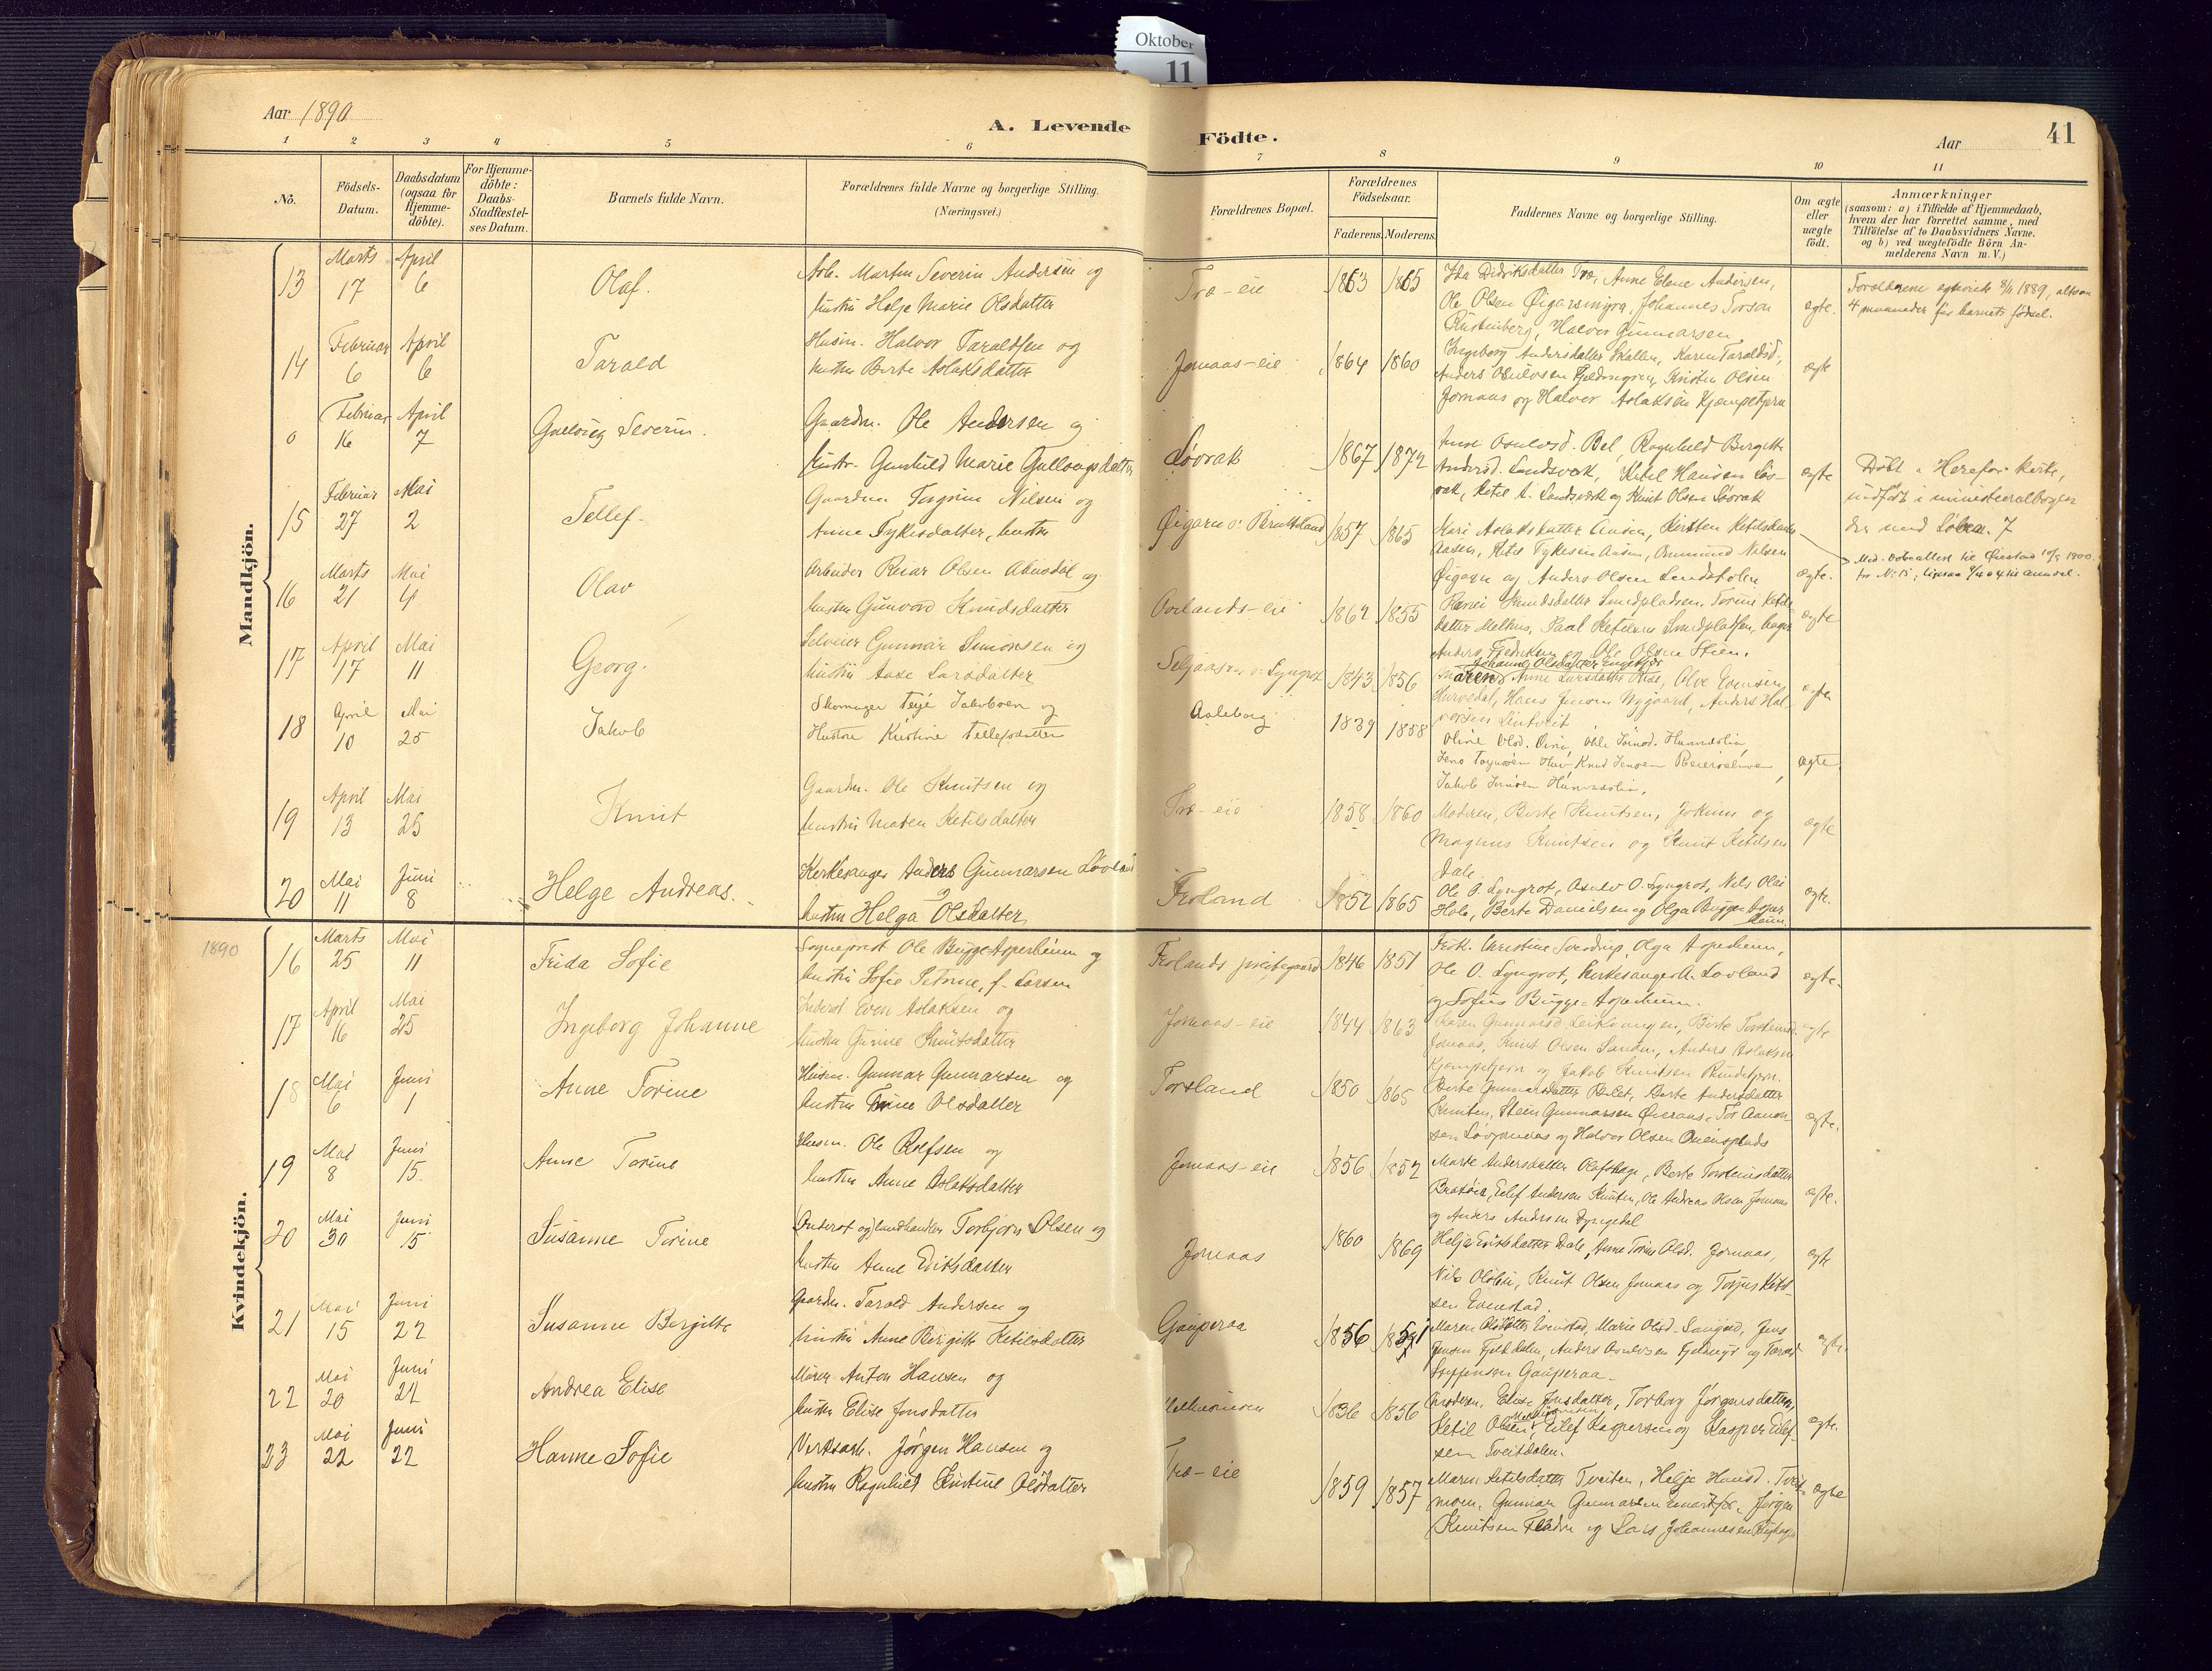 Oktober
11
Aar 1890
A. Levende
Födte.
Aar
41
1 2 3 4 5 6 7 8 9 10 11
No.
Födsels-
Datum.
Daabsdatum
(ogsaa for
Hjemme-
döbte).
For Hjemme-
döbte:
Daabs-
Stadfæstel-
ses Datum.
Barnets fulde Navn.
Forældrenes fulde Navne og borgerlige Stilling.
(Næringsvei.)
Forældrenes Bopæl.
Forældrenes
Födselsaar.
Faderens. Moderens.
Faddernes Navne og borgerlige Stilling.
Om ægte
eller
uægte
födt.
Anmærkninger
(saasom: a) i Tilfælde af Hjemmedaab,
hvem der har forrettet samme, med
Tilföielse af to Daabsvidners Navne.
og b) ved uægtefödte Börn An-
melderens Navn m.V.)
Mandkjön.
13
Marts 17
April 6
Olaf.
Arb. Martin Severin Andersen og
hustru Helje Marie Olsdatter
Træ-eie
1863 1865
Ida Didriksdatter Træ, Anne Elene Andersen,
Ole Olsen Øigarsmyra, Johannes Torson
Rustenberg, Halvor Gunnarsen
ægte.
Forældrene egteviet 8/11 1889, altsaa
4 maaneder før barnets fødsel.
14
Februar 6
April 6
Tarald
Husm. Halvor Taraldsen og
hustru Berte Aslaksdatter
Jomaas-eie
1864 1860
Ingeborg Andersdatter Skallen, Karen Taraldsd.,
Anders Osulvsen Fjeldmyren, Kristen Olsen
Jomaas og Halvor Aslaksen Kjempetjern
ægte
0
Februar 16
April 7
Gullvig Severin.
Gaardm. Ole Andersen og
hustr. Gunhild Marie Gullvigsdatter
Løvrak
1867 1872
Osulvsd. Bel, Ragnhild Bergitte
Andersd. Landsverk, Ketil Hansen Løv-
rak, Ketil A. Landsverk og Knut Olsen Løvrak
ægte
Døbt i Herefos kirke,
indført i ministerialbogen
der med Løbn. 7
15
Februar 27
Mai 2
Tellef.
Gaardm. Torgrim Nilsen og
Anne Tykisdatter, hustru
Øigarn
1857 1865
Mari Aslaksdatter Aasen, Kirsten Ketilsdatter
Aasen, Ketil Tykesen Aasen, Osmund Nilsen
Øigarn og Anders Olsen Lindtolen
ægte.
Med. Døbeattest til Øiestad 10/5 1900
for No 15,
16
Marts 21
Mai 4
Olav
Arbeider Reiar Olsen Abusdal og
hustru Gunvord Knudsdatter
Ovelands-eie
1862 1855
Ranei Knudsdatter Smedpladsen, Torine Ketils-
datter Melhus, Paal Ketilsen Smedpladsen, bager
Anders Fredriksen og Ole Olsen Stien.
ægte
17
April 17
Mai 11
Georg.
Selveier Gunnar Simonsen og
hustru Aase Larsdatter
1843 1856
Johanne Olsdatter Engekjær
Maren, Anne Larsdatter Rise, Olve Evensen
Hurvedal, Hans Jensen Nygaard, Anders Hal-
vorsen Lintveit
ægte
18
April 10
Mai 25
Jakob
Skomager Terje Jakobsen og
Hustru Kristine Tellefsdatter
Asleborg
1839 1858
Oline Olsd.
Jens Knud Jensen
Jakob Jensen
ægte
19
April 13
Mai 25
Knut
Gaardm. Ole Knutsen og
hustru Maren Ketilsdatter
Træ-eie
1858 1860
Moderen, Berte Knutsen, Jokum og
Magnus Knutsen og Knut Ketilsen
Dale.
ægte
20
Mai 11
Juni 8
Helge Andreas.
Kirkesanger Anders Gunnarsen Løvland
hustru Helga Olsdatter
Froland
1852 1865
Ole O. Lyngrot, Osulv O. Lyngrot, Nils Olai
Holo, Berte Danielsen og Olga Bugge-Asper
heim.
ægte.
Kvindekjön.
1890
16
Marts 25
Mai 11
Frida Sofie
Sogneprest Ole Bugge Asperheim og
hustru Sofie Petrine, f. Larsen
Frolands prestegaard
1846 1851
Frøk. Christine Sverdrup, Olga Asperheim,
Ole O. Lyngrot, kirkesanger A. Løvland
og Sofus Bugge-Asperheim.
ægte.
17
April 16
Mai 25
Ingeborg Johanne
Inderst Even Aslaksen og
hustru Gurine Knutsdatter
Jomaas-eie
1844 1863
Karen Gunnarsd. Leiklvangen, Berte Torsteinsd.
Jomaas, Knut Olsen Landen, Anders Aslaksen
Kjempetjern og Jakob Knutsen Rundtjern.
ægte
18
Mai 6
Juni 1
Anne Torine
Husm. Gunnar Gunnarsen og
hustru Trine Olsdatter
Torsland
1850 1865
Berte Gunnarsdatter Belet, Berte Andersdatter
Knuten, Stein Gunnarsen Øveraas, Tor Aanon-
sen Løvjomaas og Halvor Olsen Oneinsplads
ægte.
19
Mai 8
Juni 15.
Anne Torine
Husm. Ole Rolfsen og
hustru Anne Aslaksdatter
Jomaas-eie
1856 1852
Marte Andersdatter Olafshage, Berte Torsteinsdatter
Bratøia, Eilef Andersen Knuten, Ole Andreas Olsen Jomaas
og Anders Andersen Lyngedal
ægte.
20
Mai 30
Juni 15.
Susanne Torine
Inderst og landhandler Torbjørn Olsen og
hustru Anne Eriksdatter
Jomaas
1860 1869
Helje Eriksdatter Dale, Anne Torine Olsd. Jomaas,
Nils Olsen, Knut Olsen Jomaas og Torjus Ketil-
sen Evenstad.
ægte
21
Mai 15
Juni 22
Susanne Bergitte
Gaardm. Tarald Andersen og
hustru Anne Bergitte Ketilsdatter
Gauperaa
1856 1851
Maren Olsdatter Evenstad, Marie Olsd. Langsed, Jens
Jensen Fjelldalen, Anders Osulvsen Fjeldmyr og Tarald
Steffensen Gauperaa.
ægte
22
Mai 20
Juni 22
Andrea Elise
Murer Anton Hansen og
hustru Elise Jonsdatter
1836 1856
Moderen, Elise Jonsdatter, Torbor Jørgensdatter,
Ketil Olsen, Eilef Kaspersen og Kasper Eilef-
sen Tveitdalen.
ægte.
23
Mai 22
Juni 22
Hanne Sofie
Verksarb. Jørgen Hansen og
hustru Ragnhild Kristine Olsdatter
Træ-eie
1859 1857
Maren Ketilsdatter Tveiten, Helje Hansd. Tveit-
moen, Gunnar Gunnarsen, Jørgen
Knutsen og Lars Johannesen
ægte